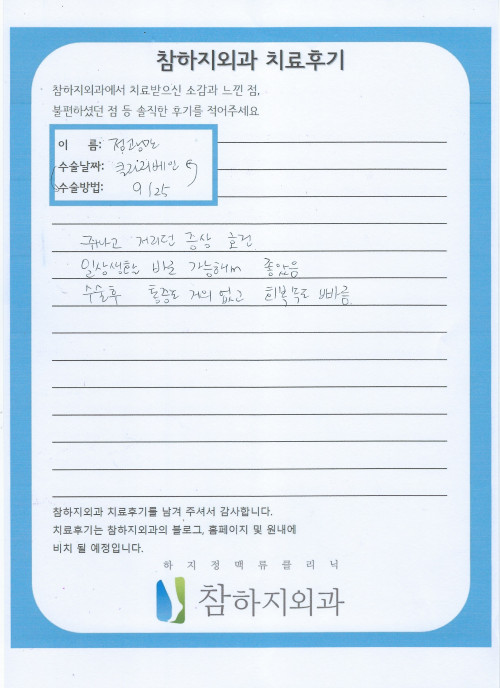 참하지외과 치료후기
참하지외과에서 치료받으신 소감과 느낀 점,
불편하셨던 점 등 솔직한 후기를 적어주세요
이 름:
수술날짜: 클라리베인
수술방법: 9/25
쥐나고 저리던 증상 호전
일상생활 바로 가능해서 좋았음
수술후 통증도 거의 없고 회복속도 빠름
참하지외과 치료후기를 남겨 주셔서 감사합니다.
치료후기는 참하지외과의 블로그, 홈페이지 및 원내에
비치 될 예정입니다.
하지정맥류클리닉
참하지외과